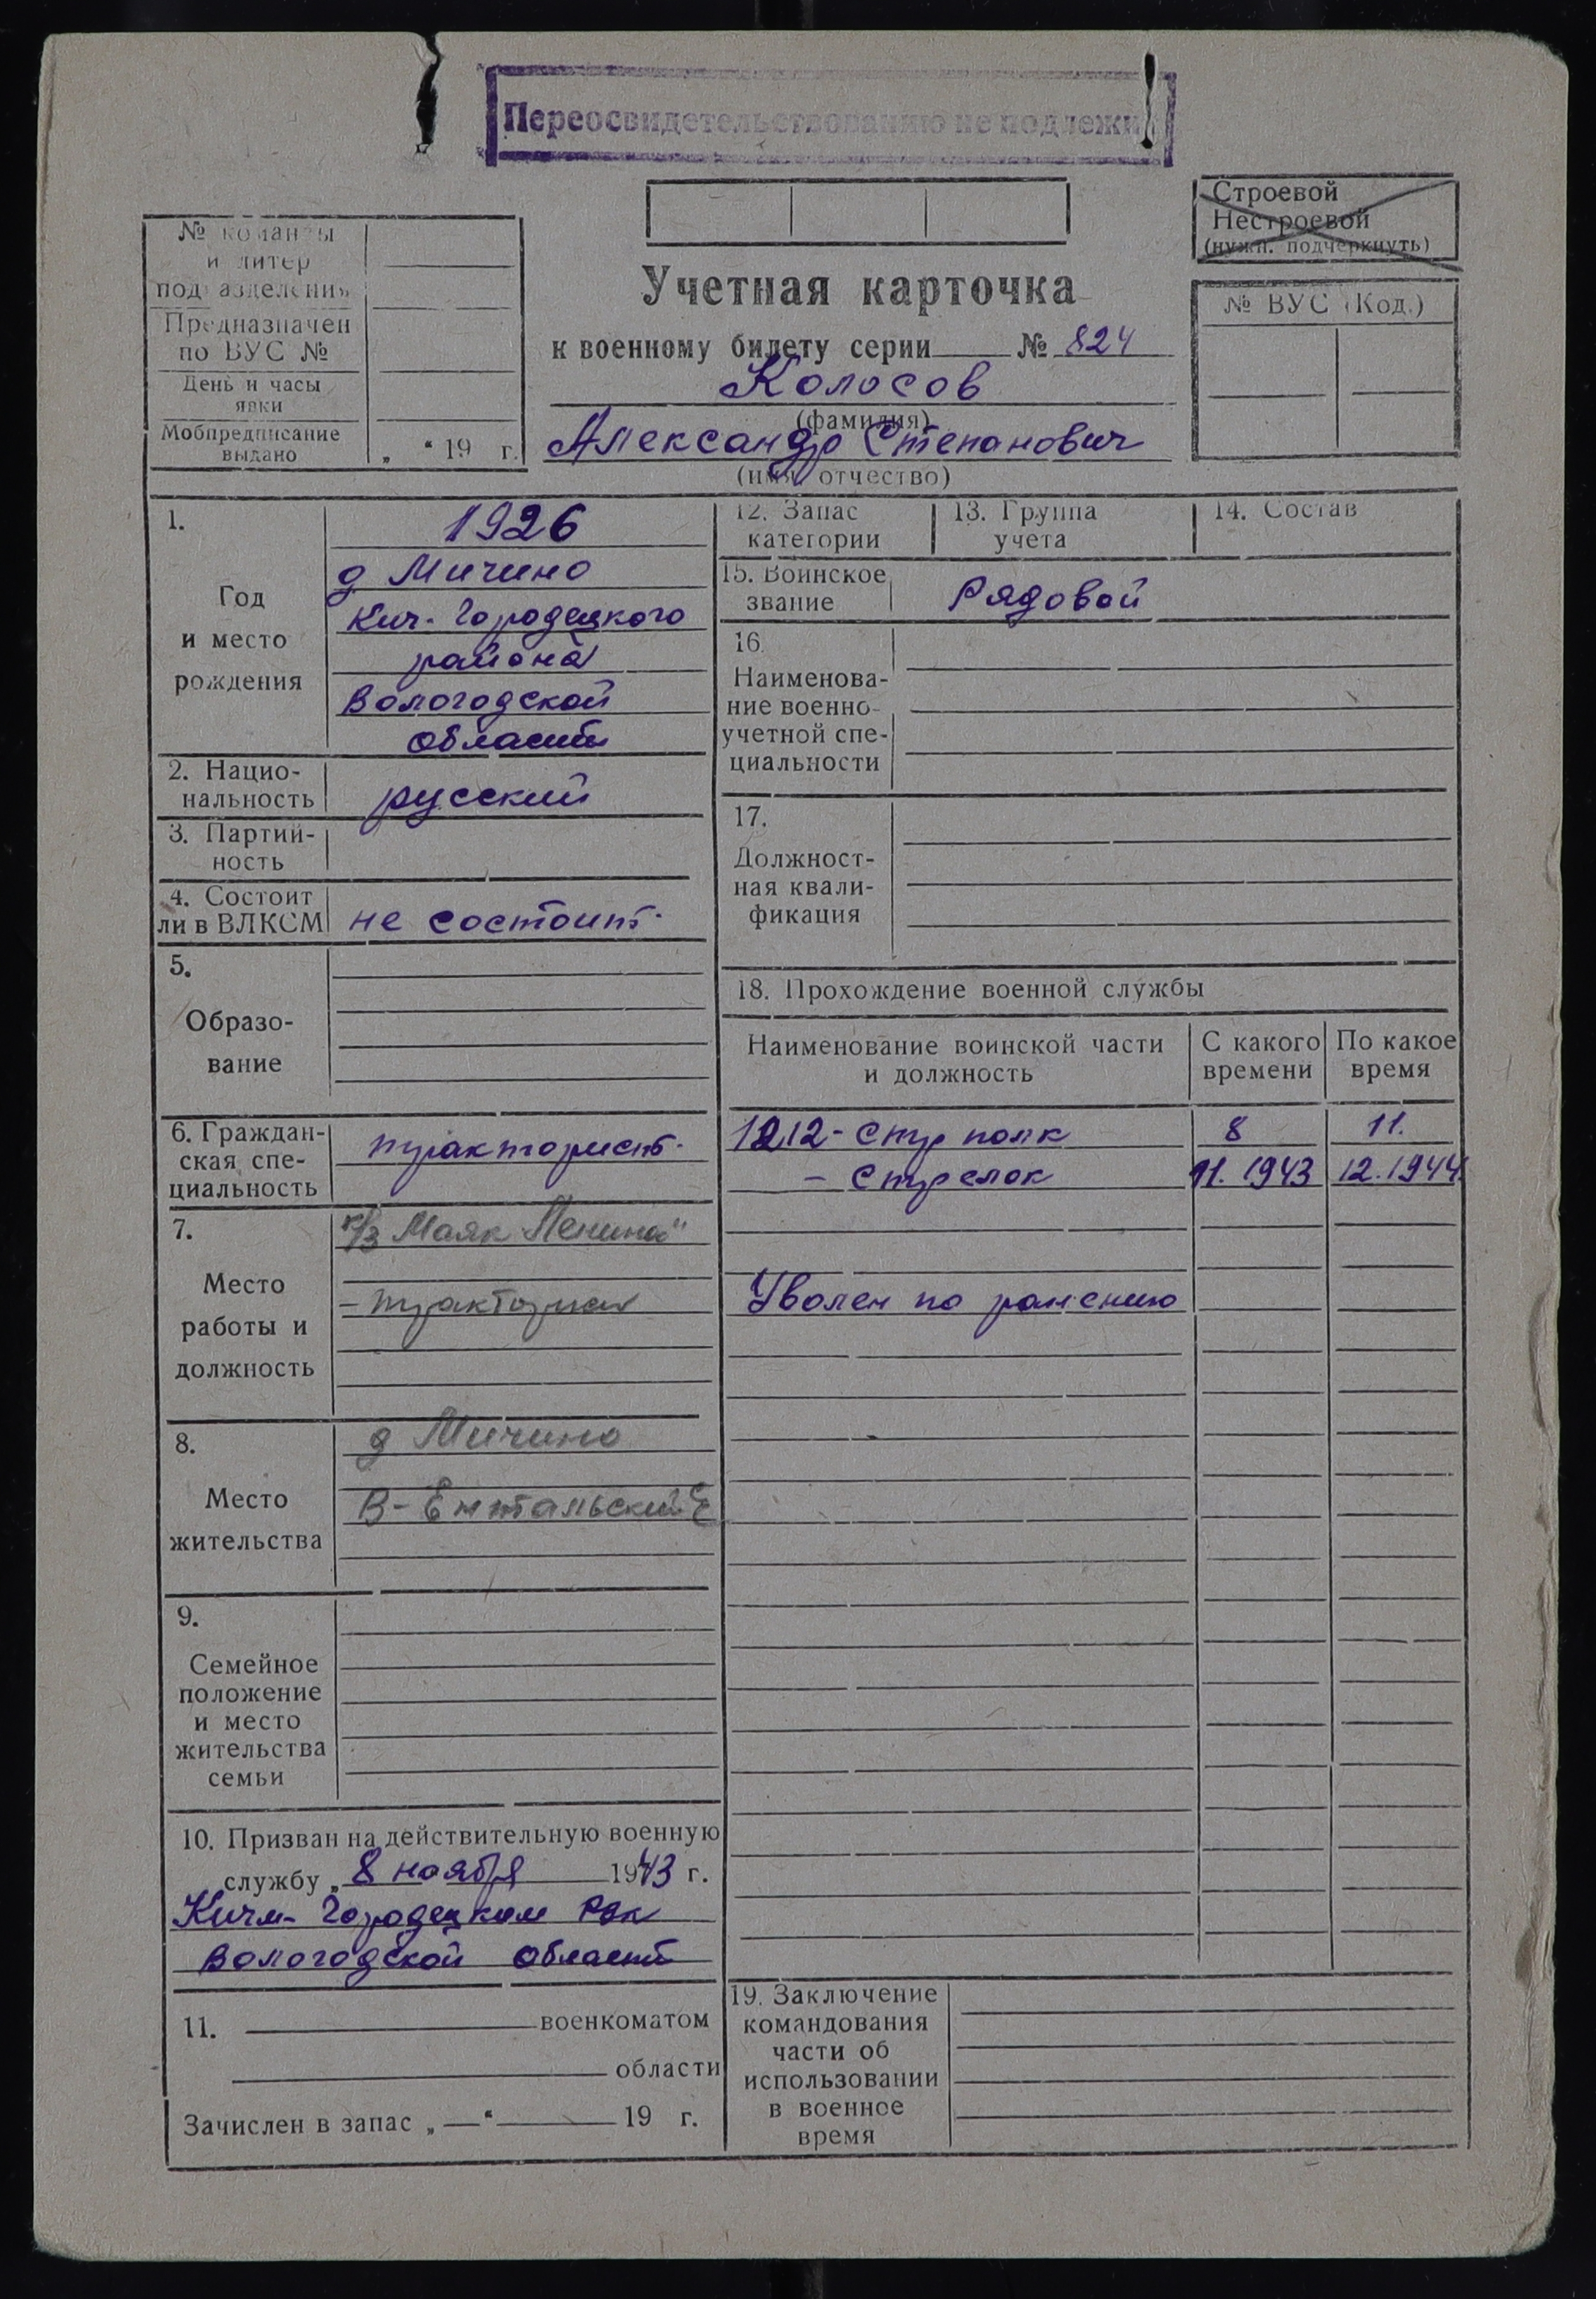 Переосвидетельствованию не подлежи
Строевой
Нестроевой
(нужн. подчеркнуть)
№ команды
и литер
подразделения
Предназначен
по ВУС №
День и часы
явки
Мобпредписание
выдано
„ “ 19 г.
Учетная карточка
к военному билету серии № 824
Колосов
(фамилия)
Александр Степанович
(имя, отчество)
№ ВУС (Код.)
1.
Год
и место
рождения
1926
д Мичино
Кич-Городецкого
района
Вологодской
области
2. Нацио-
нальность
русский
3. Партий-
ность
4. Состоит
ли в ВЛКСМ
не состоит.
5.
Образо-
вание
6. Граждан-
ская спе-
циальность
тракторист.
7.
Место
работы и
должность
к/з Маяк Ленина"
- тракторист
8.
Место
жительства
д Мичино
В-Ентальский
9.
Семейное
положение
и место
жительства
семьи
10. Призван на действительную военную
службу „ 8 ноября 1943 г.
Кичм-Городецким Рвк
Вологодской области
11. военкоматом
области
Зачислен в запас „—“ 19 г.
12. Запас
категории
13. Группа
учета
14. Состав
15. Воинское
звание
Рядовой
16.
Наименова-
ние военно-
учетной спе-
циальности
17.
Должност-
ная квали-
фикация
18. Прохождение военной службы
Наименование воинской части
и должность
С какого
времени
По какое
время
1212-стр полк 8 11.
- стрелок 11.1943 12.1944
Уволен по ранению
19. Заключение
командования
части об
использовании
в военное
время